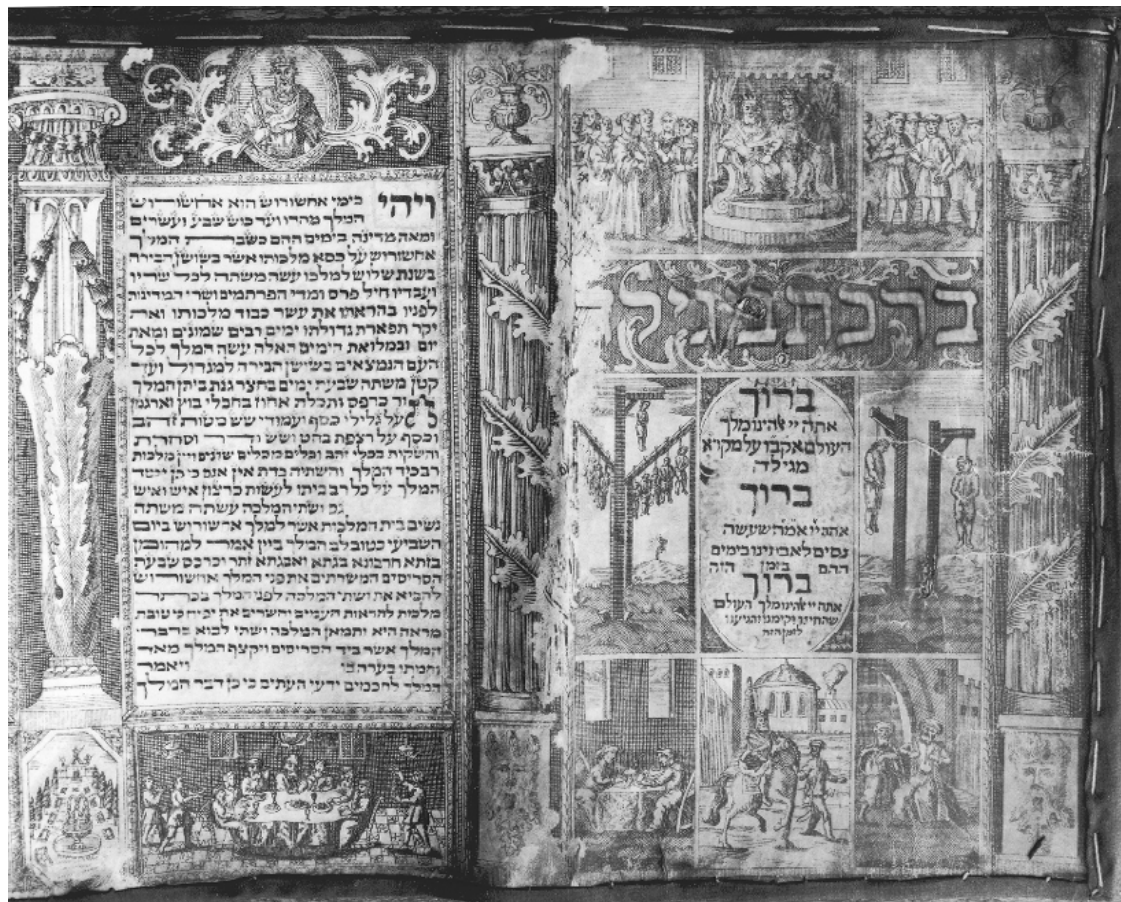 ברכת מגילה
ברוך
אתה יי אלהינו מלך
העולם אקב״ו על מקרא
מגילה
ברוך
אתה יי אמ״ה שעשה
נסים לאבותינו בימים
ההם בזמן הזה
ברוך
אתה יי אלהינו מלך העולם
שהחיינו וקימנו והגיענו
לזמן הזה
ויהי בימי אחשורוש הוא אחשורוש
המלך מהדו ועד כוש שבע ועשרים
ומאה מדינה בימים ההם כשבת המלך
אחשורוש על כסא מלכותו אשר בשושן הבירה
בשנת שלוש למלכו עשה משתה לכל שריו
ועבדיו חיל פרס ומדי הפרתמים ושרי המדינות
לפניו בהראתו את עשר כבוד מלכותו ואת
יקר תפארת גדולתו ימים רבים שמונים ומאת
יום ובמלואת הימים האלה עשה המלך לכל
העם הנמצאים בשושן הבירה למגדול ועד
קטן משתה שבעת ימים בחצר גנת ביתן המלך
חור כרפס ותכלת אחוז בחבלי בוץ וארגמן
על גלילי כסף ועמודי שש מטות זהב
וכסף על רצפת בהט ושש ודר וסחרת
והשקות בכלי זהב וכלים מכלים שונים ויין מלכות
רב כיד המלך והשתיה כדת אין אנס כי כן יסד
המלך על כל רב ביתו לעשות כרצון איש ואיש
גם ושתי המלכה עשתה משתה
נשים בית המלכות אשר למלך אחשורוש ביום
השביעי כטוב לב המלך ביין אמר למהומן
בזתא חרבונא בגתא ואבגתא זתר וכרכס שבעת
הסריסים המשרתים את פני המלך אחשורוש
להביא את ושתי המלכה לפני המלך בכתר
מלכות להראות העמים והשרים את יפיה כי טובת
מראה היא ותמאן המלכה ושתי לבוא בדבר
המלך אשר ביד הסריסים ויקצף המלך מאד
וחמתו בערה בו ויאמר
המלך לחכמים ידעי העתים כי כן דבר המלך